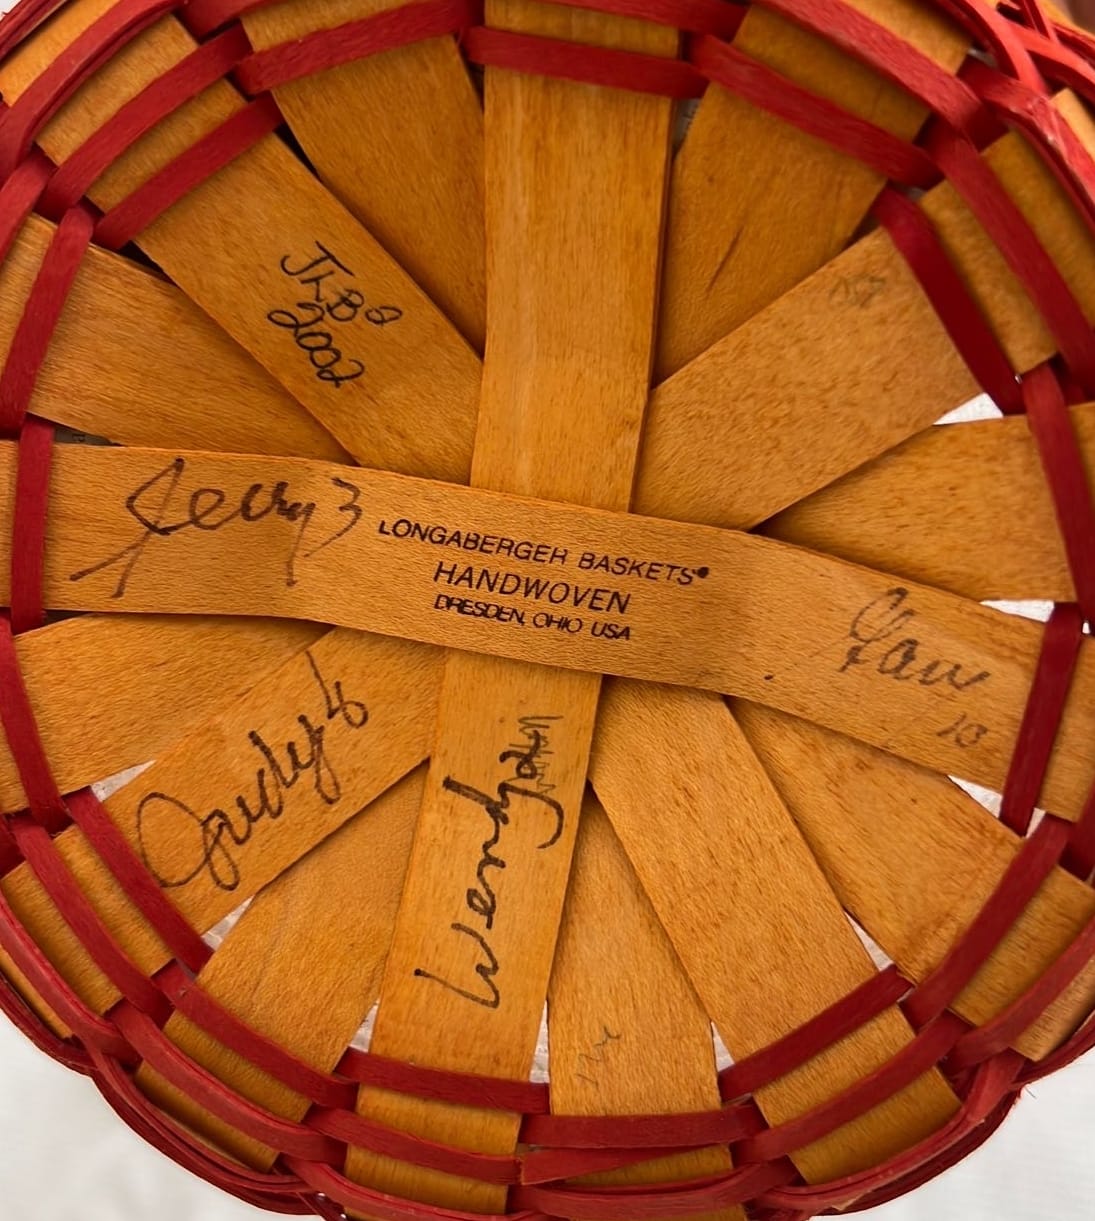 JLB
2002
Jerry 3
LONGABERGER BASKETS®
HANDWOVEN
DRESDEN, OHIO USA
10
Judy
Wendy